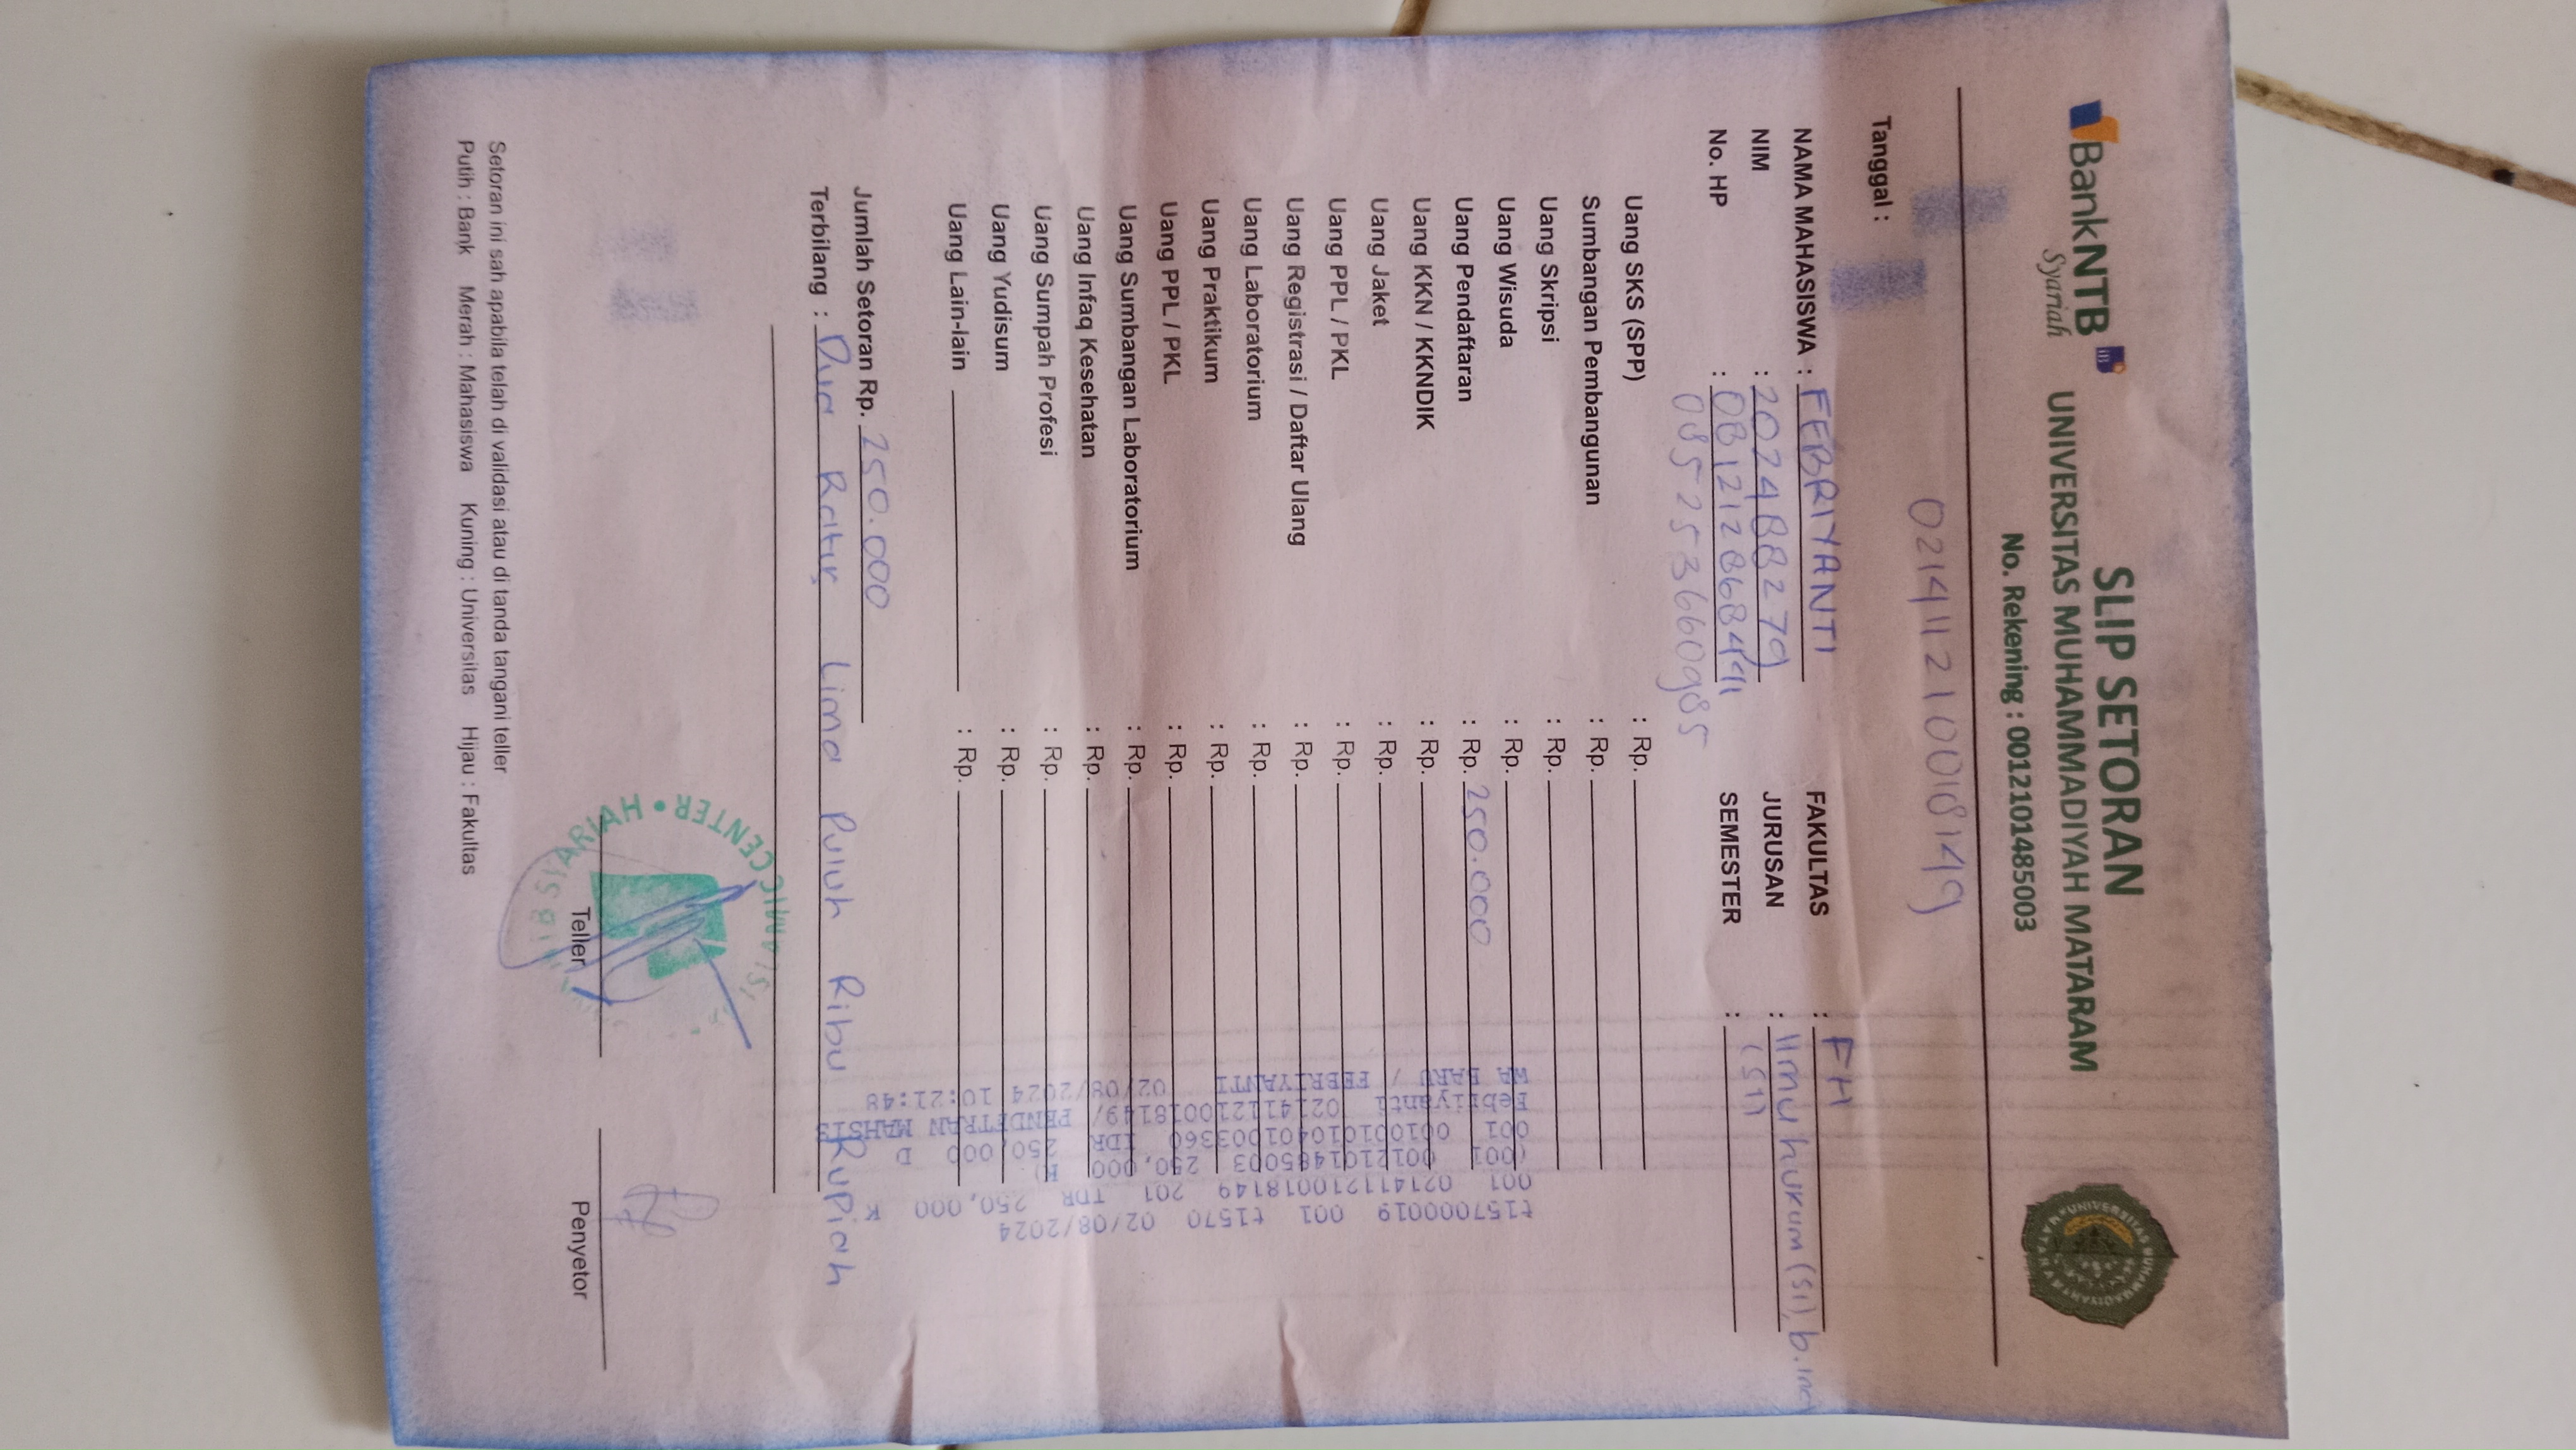 BankNTB
Syariah
SLIP SETORAN
UNIVERSITAS MUHAMMADIYAH MATARAM
No. Rekening : 0012101485003
021411210018149
Tanggal :
NAMA MAHASISWA : FEBRIYANTI FAKULTAS : FH
NIM : 2024B8279 JURUSAN : Ilmu hukum (S1), b.ing
No. HP : SEMESTER : (S1)
085253660985
Uang SKS (SPP) : Rp.
Sumbangan Pembangunan : Rp.
Uang Skripsi : Rp.
Uang Wisuda : Rp.
Uang Pendaftaran : Rp. 250.000
Uang KKN / KKNDIK : Rp.
Uang Jaket : Rp.
Uang PPL / PKL : Rp.
Uang Registrasi / Daftar Ulang : Rp.
Uang Laboratorium : Rp.
Uang Praktikum : Rp.
Uang PPL / PKL : Rp.
Uang Sumbangan Laboratorium : Rp.
Uang Infaq Kesehatan : Rp.
Uang Sumpah Profesi : Rp.
Uang Yudisum : Rp.
Uang Lain-lain : Rp.
Jumlah Setoran Rp. 250.000
Terbilang : Dua Ratus Lima Puluh Ribu Rupiah
t157000019 001 t1570 02/08/2024
001 021411210018149 201 IDR 250,000 K
001 0012101485003 250,000 K
001 001001010401003360 IDR 250,000 D
Febriyanti 021411210018149/ PENDFTRAN MAHSIS
WA BARU / FEBRIYANTI 02/08/2024 10:21:48
ISLAMIC CENTER
Teller Penyetor
Setoran ini sah apabila telah di validasi atau di tanda tangani teller
Putih : Bank Merah : Mahasiswa Kuning : Universitas Hijau : Fakultas